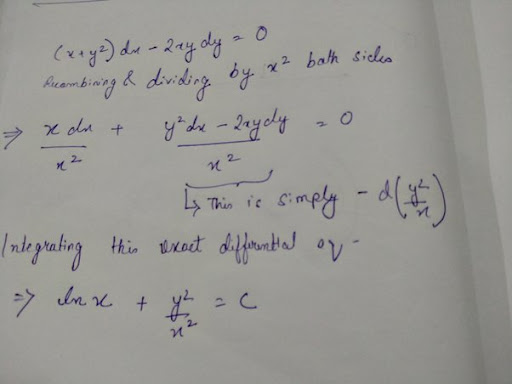 (x+y²) dx − 2xy dy = 0
Recombining & dividing by x² both sides
⇒ x dx / x² + y²dx − 2xydy / x² = 0
↳ This is simply − d(y²/x)
Integrating this exact differential eq −
⇒ ln x + y²/x² = C